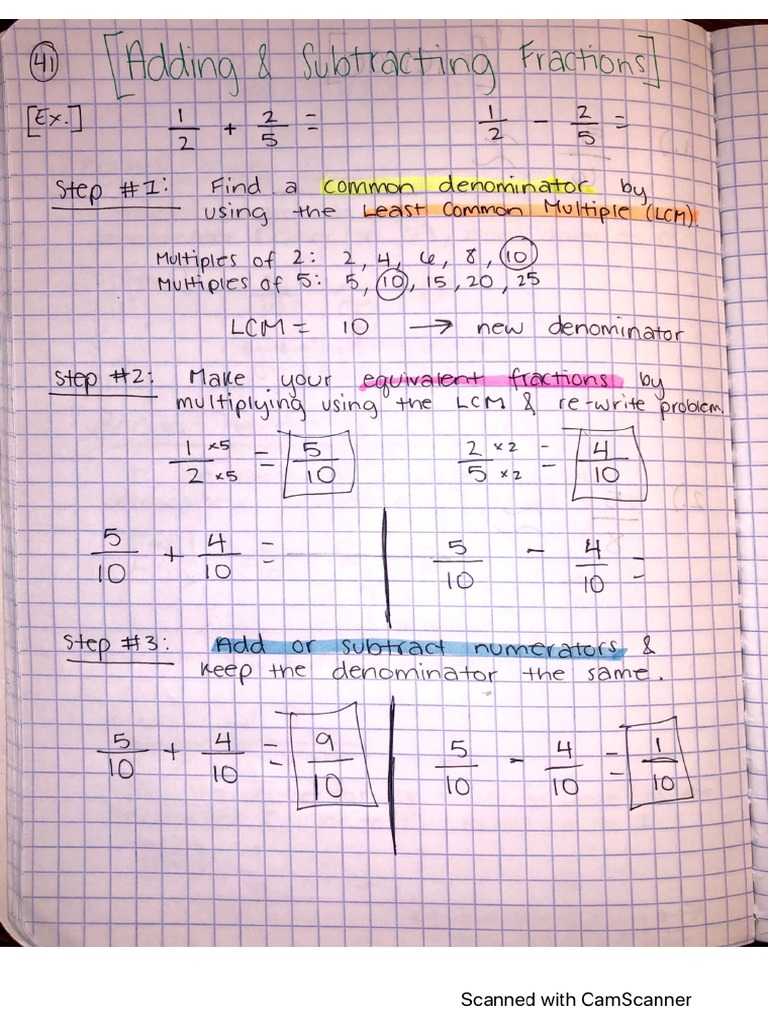 41 [Adding & Subtracting Fractions]
[Ex.] 1/2 + 2/5 = 1/2 - 2/5 =
Step #1: Find a common denominator by
using the Least Common Multiple (LCM).
Multiples of 2: 2, 4, 6, 8, 10
Multiples of 5: 5, 10, 15, 20, 25
LCM = 10 → new denominator
Step #2: Make your equivalent fractions by
multiplying using the LCM & re-write problem.
1/2 ×5/×5 = 5/10 2/5 ×2/×2 = 4/10
5/10 + 4/10 = 5/10 - 4/10 =
Step #3: Add or subtract numerators &
keep the denominator the same.
5/10 + 4/10 = 9/10 5/10 - 4/10 = 1/10
Scanned with CamScanner